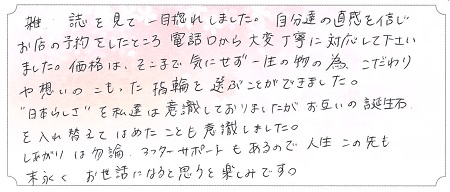 雑 誌を見て一目惚れしました。自分達の直感を信じ
お店の予約をしたところ電話口から大変丁寧に対応して下さい
ました。価格は、そこまで気にせず一生の物の為、こだわり
や想いのこもった指輪を選ぶことができました。
"日本らしさ"を私達は意識しておりましたがお互いの誕生石
を入れ替えてはめたことも意識しました。
しあがりは勿論、アフターサポートもあるので人生この先も
末永くお世話になると思うと楽しみです。